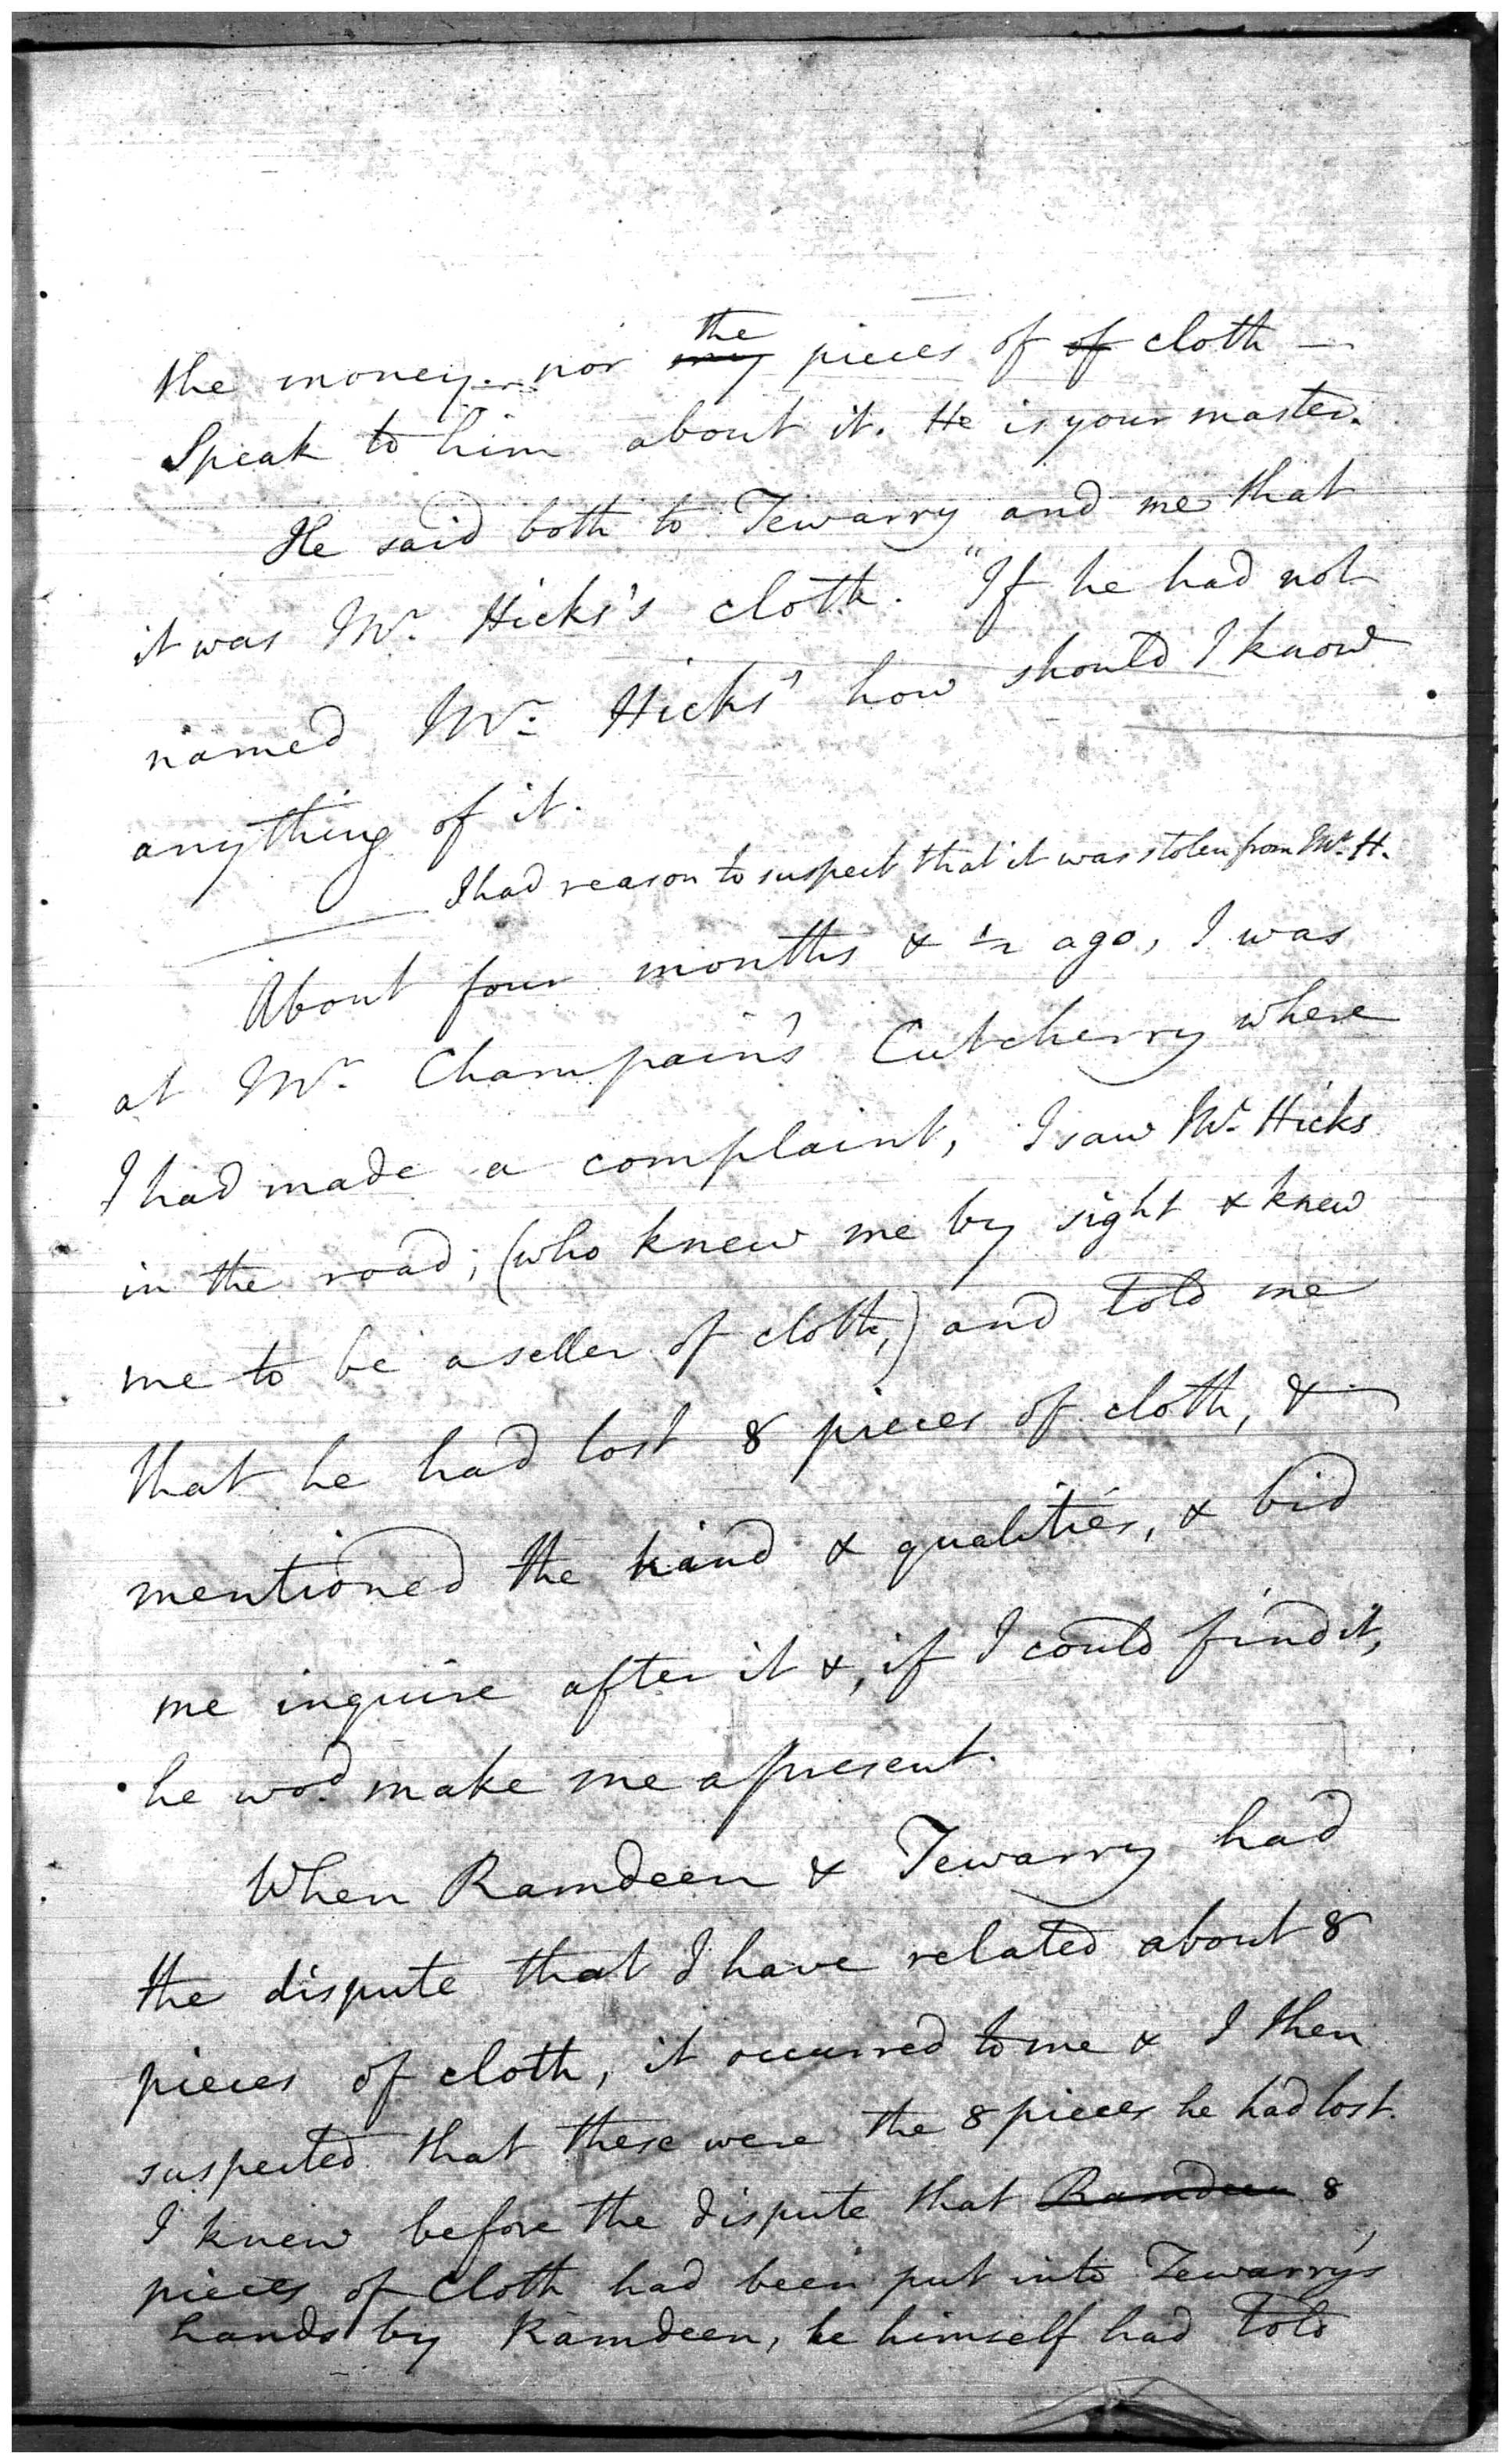 the money nor the my pieces of of cloth —
Speak to him about it. He is your master.
He said both to Tewarry and me that
it was Mr. Hicks's cloth. "If he had not
named Mr. Hicks' how should I know
anything of it.
I had reason to suspect that it was stolen from Mr. H.
About four months & ½ ago, I was
at Mr. Champain's Cutcherry where
I had made a complaint, I saw Mr. Hicks
in the road; (who knew me by sight & knew
me to be a seller of cloth,) and told me
that he had lost 8 pieces of cloth, &
mentioned the kind & qualities, & bid
me inquire after it &, if I could find it,
he wod. make me a present.
When Ramdeen & Tewarry had
the dispute that I have related about 8
pieces of cloth, it occurred to me & I then
suspected that these were the 8 pieces he had lost.
I knew before the dispute that Ramdeen 8
pieces of cloth had been put into Tewarry's
hands by Ramdeen, he himself had told